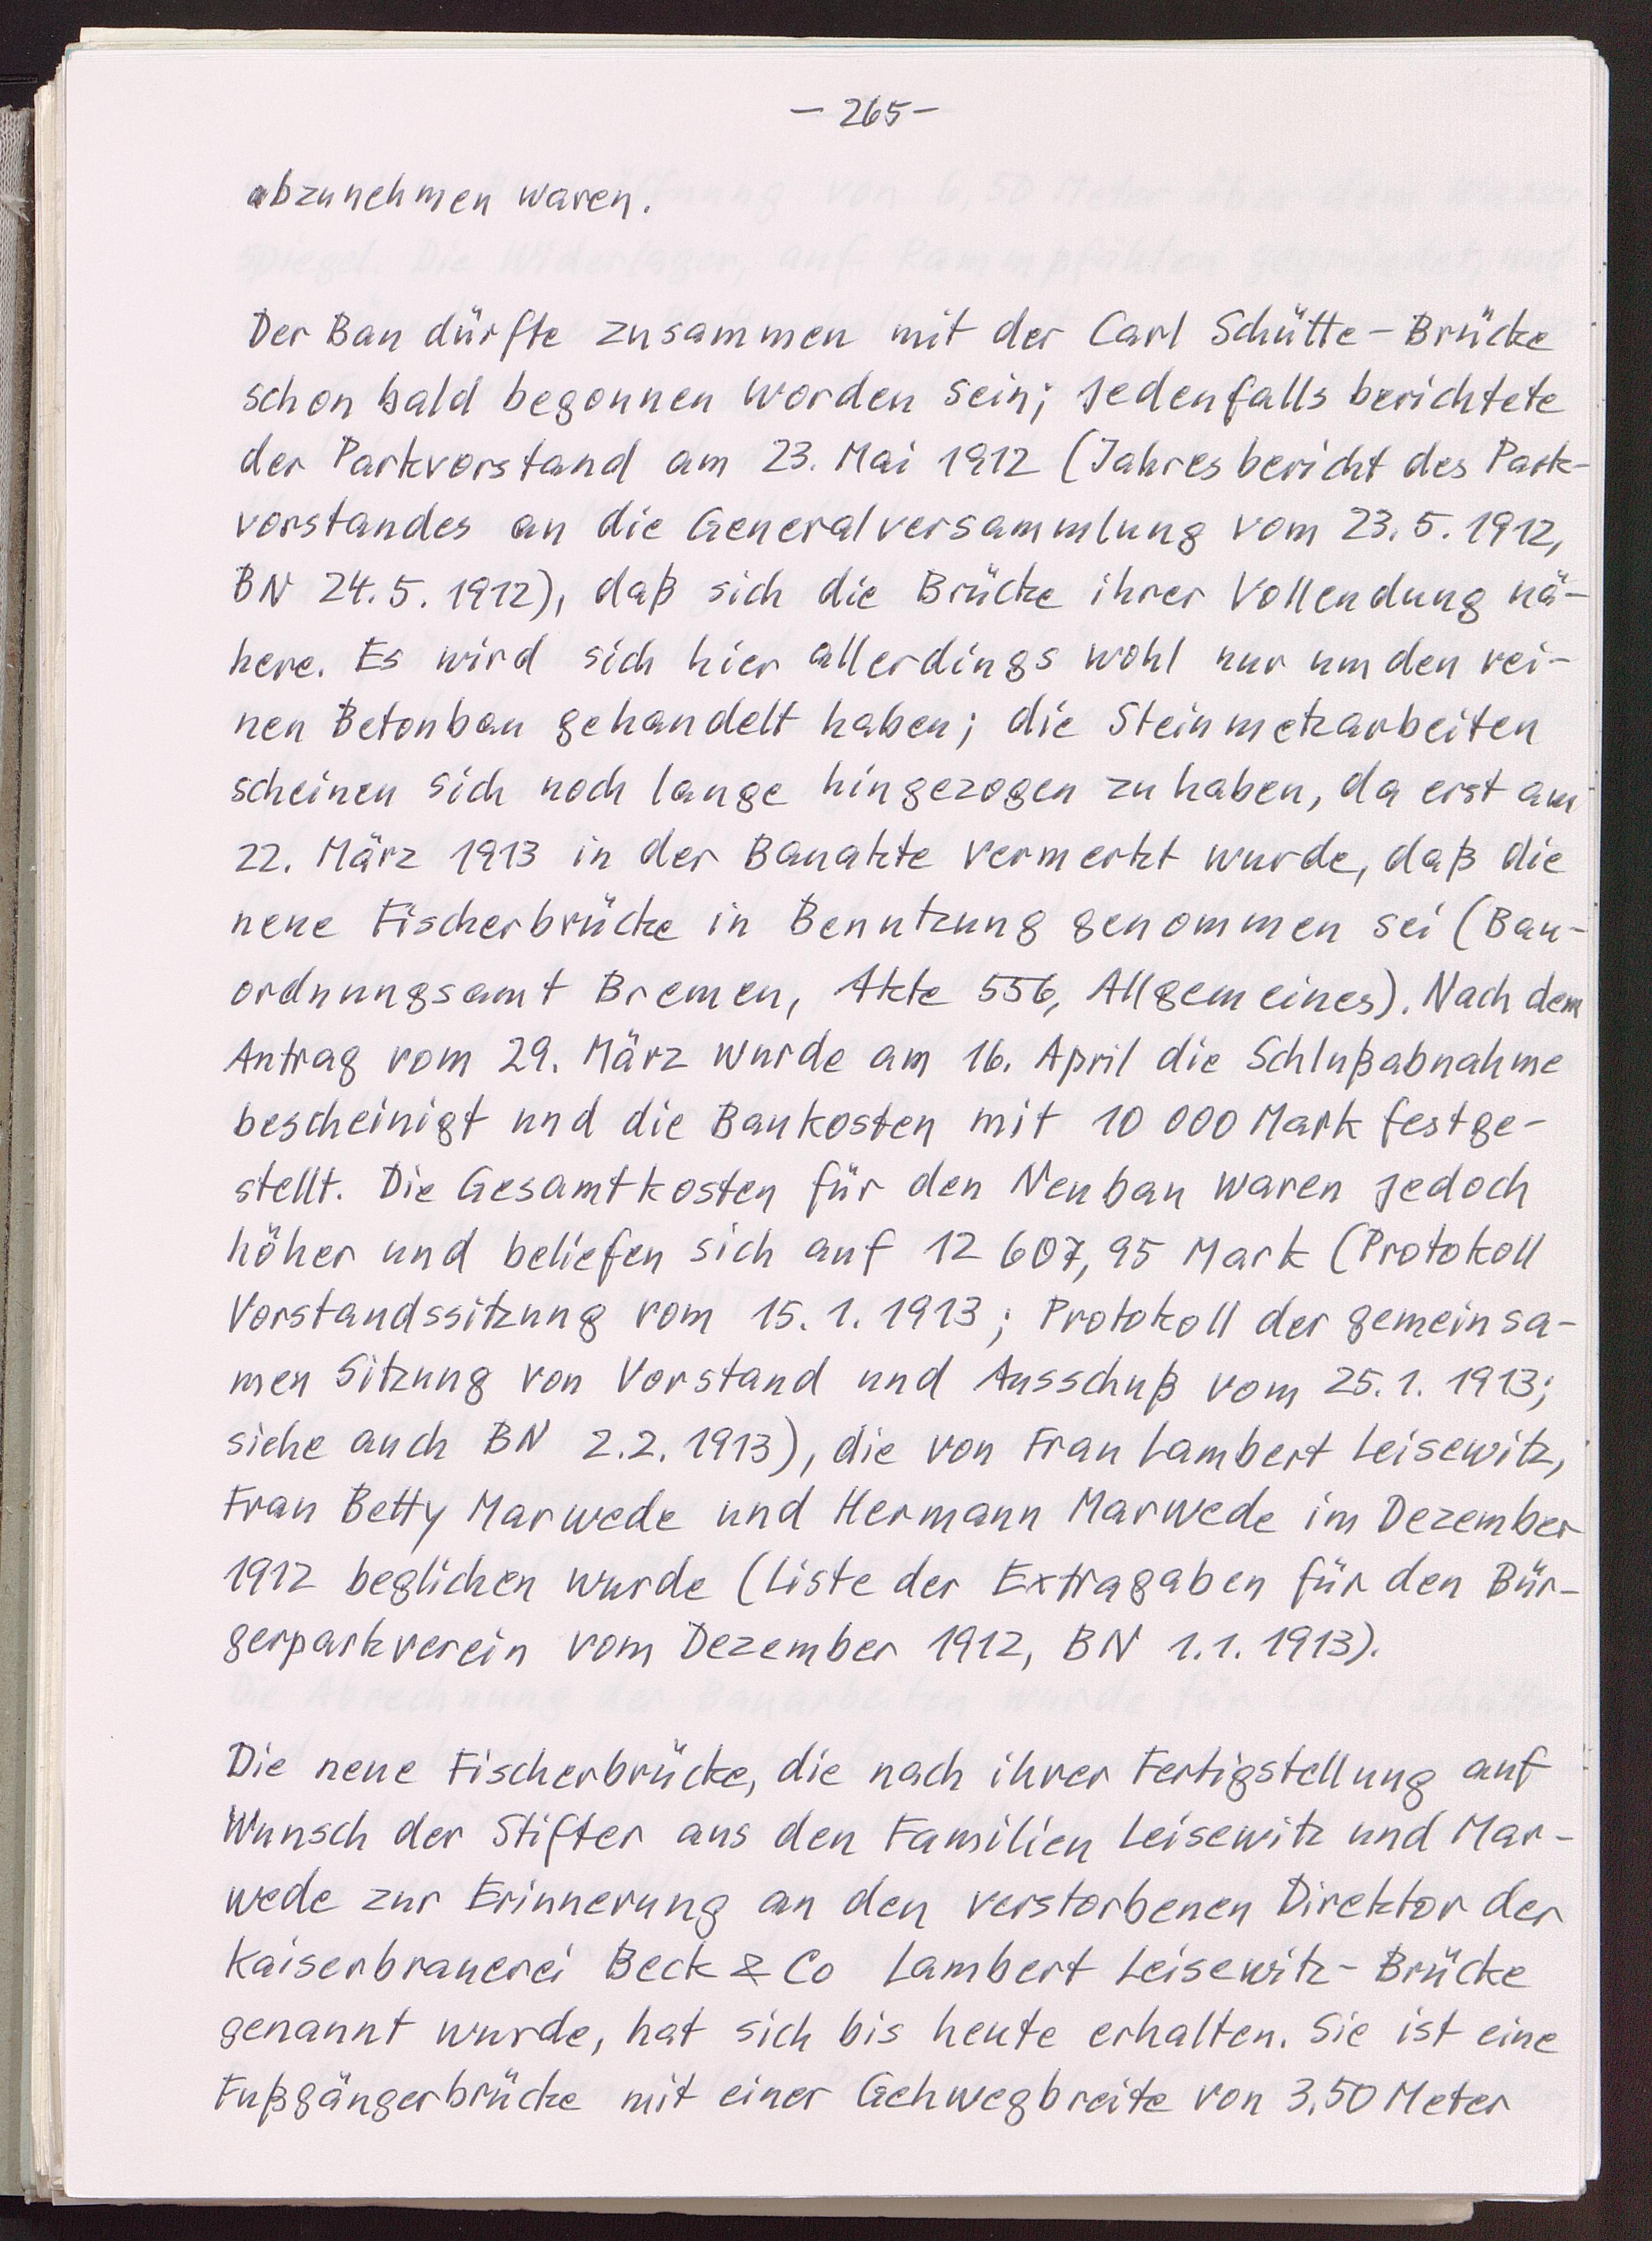 – 265 –
abzunehmen waren.
Der Bau dürfte zusammen mit der Carl Schütte-Brücke
schon bald begonnen worden sein; jedenfalls berichtete
der Parkvorstand am 23. Mai 1912 (Jahresbericht des Park-
vorstandes an die Generalversammlung vom 23.5.1912,
BN 24.5.1912), daß sich die Brücke ihrer Vollendung nä-
here. Es wird sich hier allerdings wohl nur um den rei-
nen Betonbau gehandelt haben; die Steinmetzarbeiten
scheinen sich noch lange hingezogen zu haben, da erst am
22. März 1913 in der Bauakte vermerkt wurde, daß die
neue Fischerbrücke in Benutzung genommen sei (Bau-
ordnungsamt Bremen, Akte 556, Allgemeines). Nach dem
Antrag vom 29. März wurde am 16. April die Schlußabnahme
bescheinigt und die Baukosten mit 10 000 Mark festge-
stellt. Die Gesamtkosten für den Neubau waren jedoch
höher und beliefen sich auf 12 607,95 Mark (Protokoll
Vorstandssitzung vom 15.1.1913; Protokoll der gemeinsa-
men Sitzung von Vorstand und Ausschuß vom 25.1.1913;
siehe auch BN 2.2.1913), die von Frau Lambert Leisewitz,
Frau Betty Marwede und Hermann Marwede im Dezember
1912 beglichen wurde (Liste der Extragaben für den Bür-
gerparkverein vom Dezember 1912, BN 1.1.1913).
Die neue Fischerbrücke, die nach ihrer Fertigstellung auf
Wunsch der Stifter aus den Familien Leisewitz und Mar-
wede zur Erinnerung an den verstorbenen Direktor der
Kaiserbrauerei Beck & Co Lambert Leisewitz-Brücke
genannt wurde, hat sich bis heute erhalten. Sie ist eine
Fußgängerbrücke mit einer Gehwegbreite von 3,50 Meter